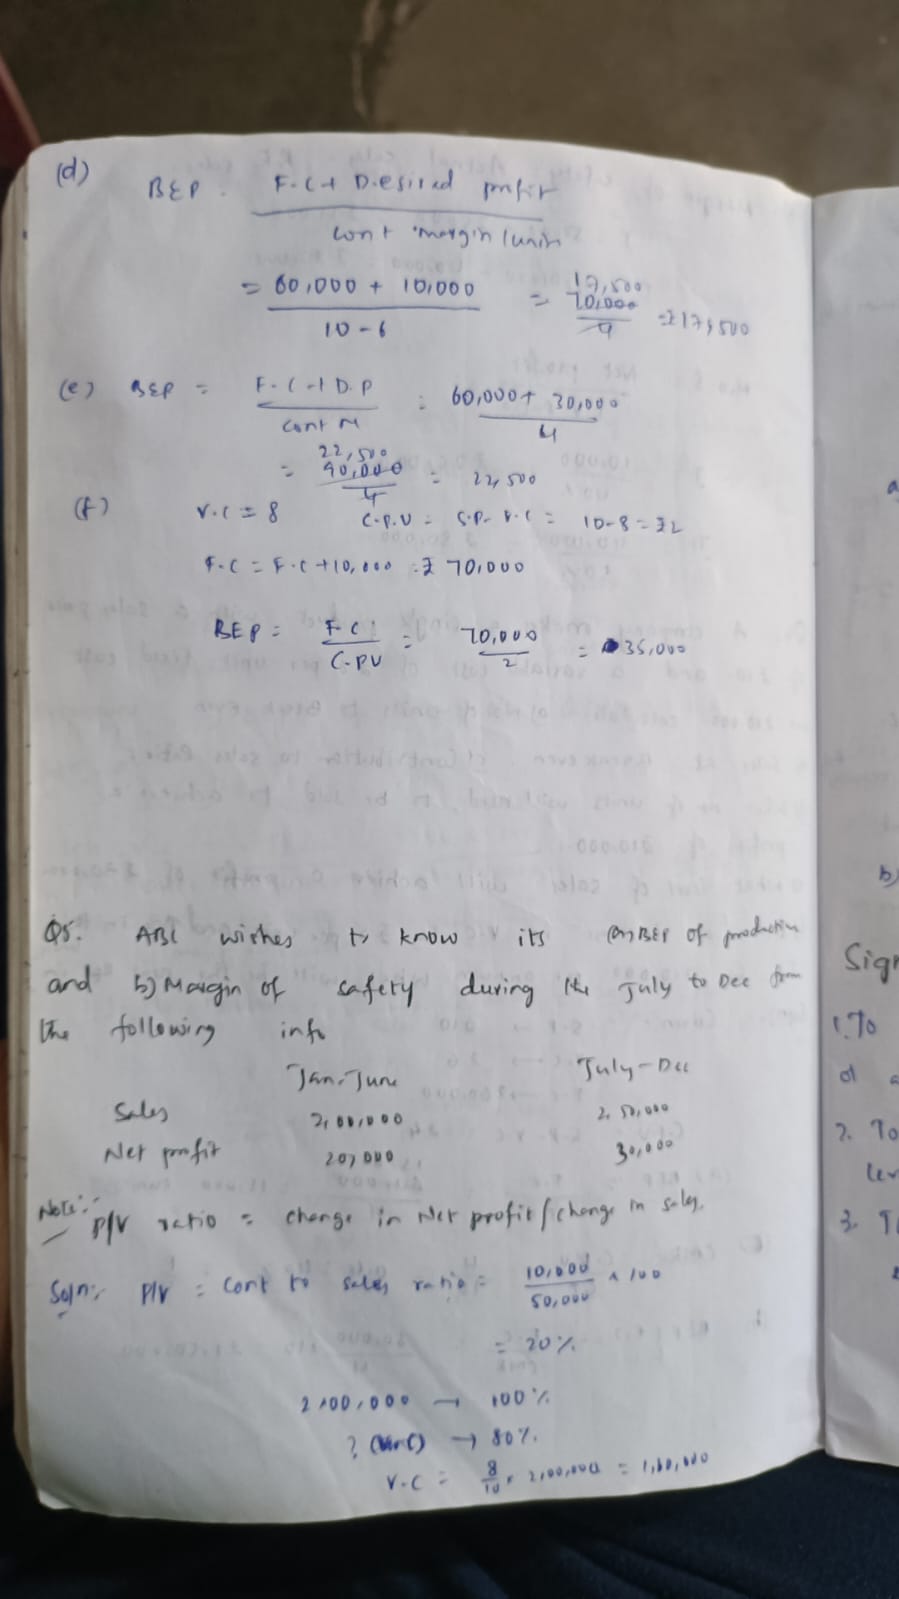 (d) BEP = F.C+ Desired profit
cont margin/unit
= 60,000 + 10,000
10-6
= 17,500
70,000
4
= ₹ 17,500
(e) BEP = F.C+D.P
Cont M
= 60,000+ 30,000
4
= 22,500
90,000
4
= 22,500
(f) V.C = 8 C.P.U = S.P- V.C = 10-8 = ₹2
F.C = F.C +10,000 = ₹ 70,000
BEP = F.C
C.PU
= 70,000
2
= 35,000
Q5. ABC wishes to know its (a) BEP of production
and b) Margin of safety during the July to Dec from
the following info
Jan-June July-Dec
Sales 2,00,000 2,50,000
Net profit 20,000 30,000
Note:- P/V ratio = change in Net profit/change in sales.
Soln:- P/V = Cont to sales ratio = 10,000
50,000
x 100
= 20%
2,00,000 → 100%
? → 80%
V.C = 8
10
x 2,00,000 = 1,60,000
Sign
1. To
of a
2. To
lev
3. T
b)